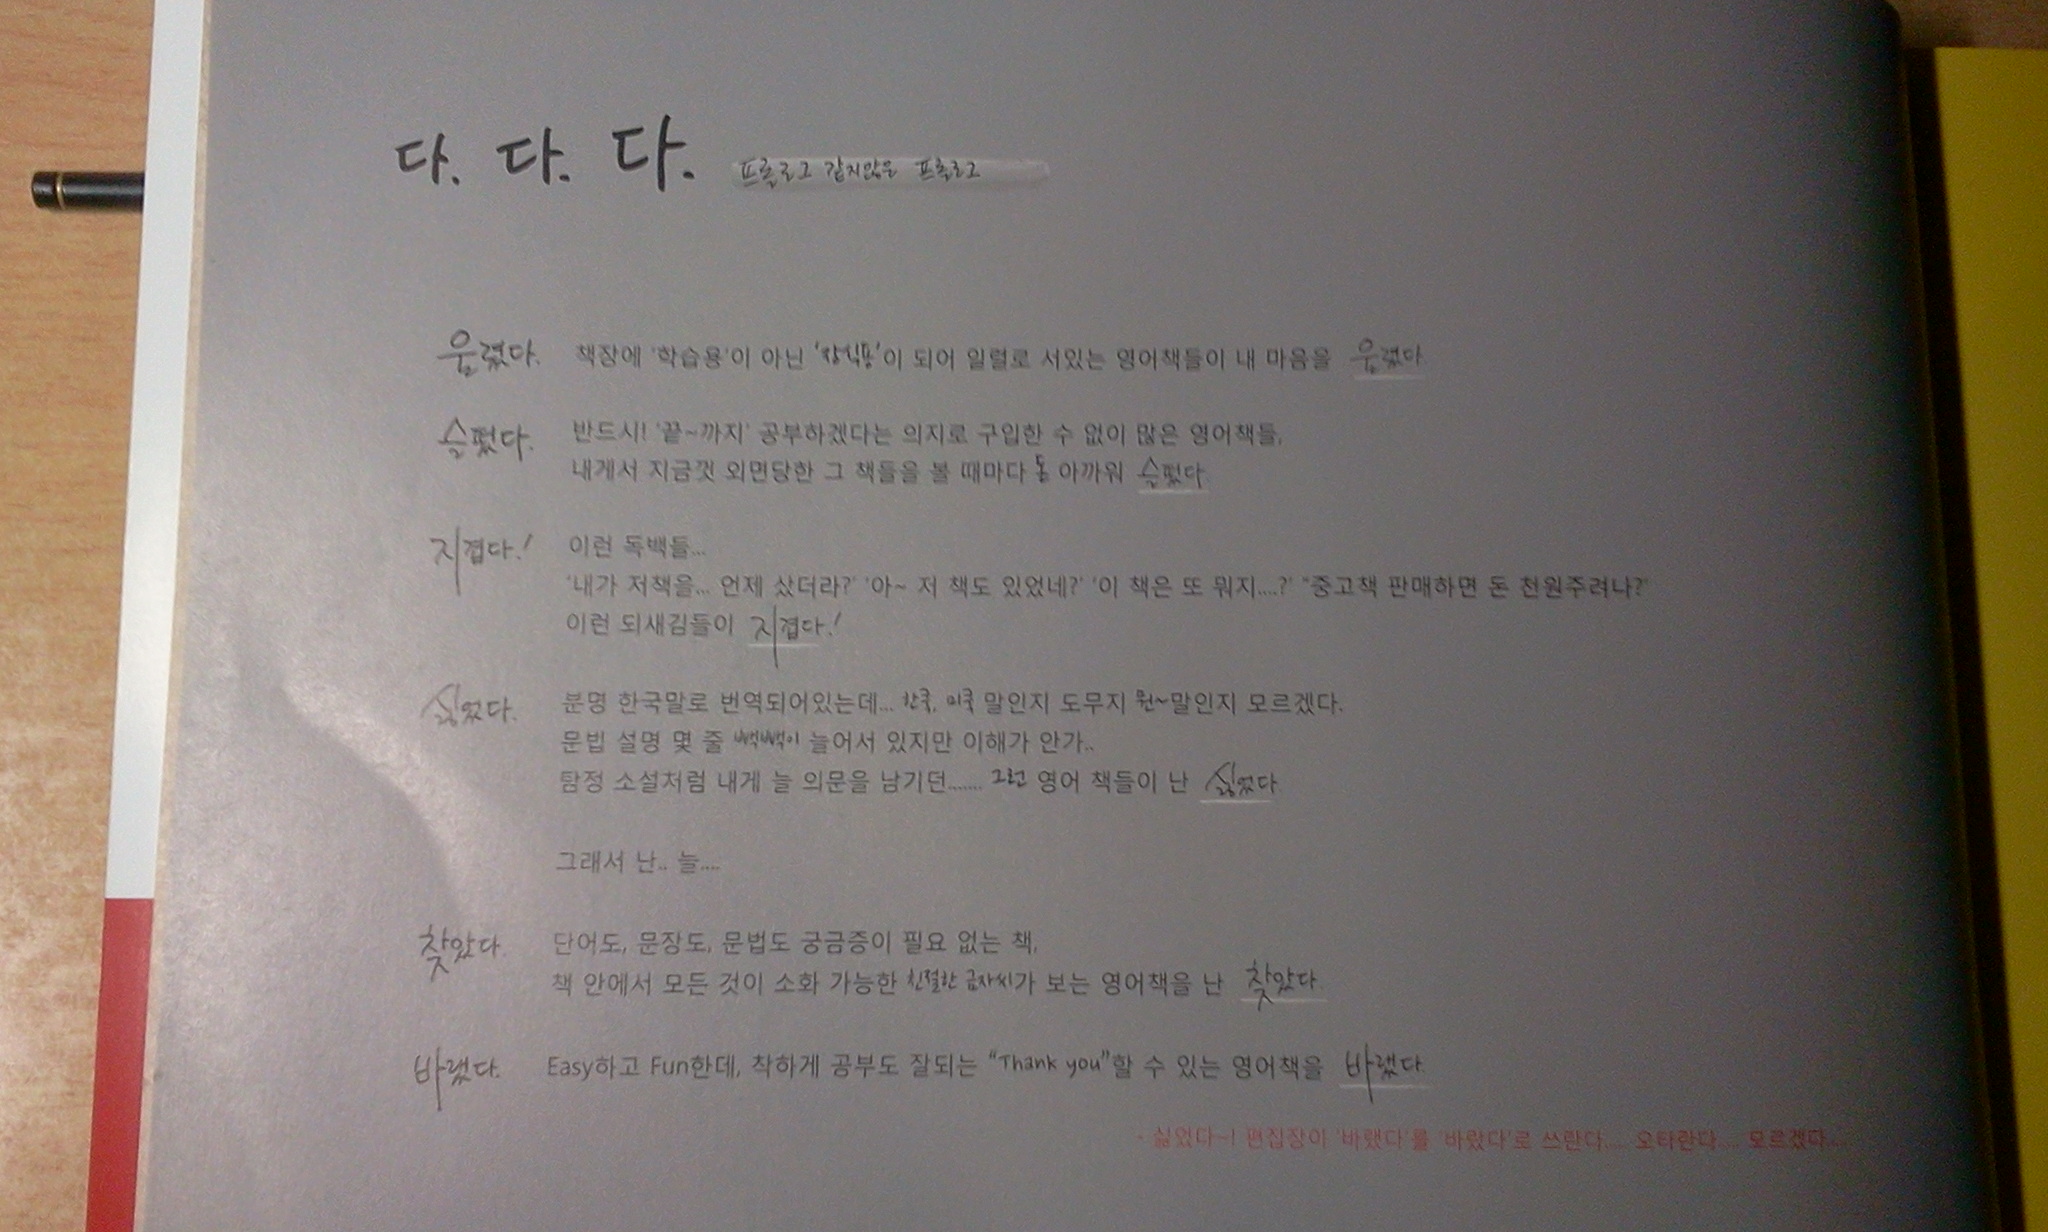 다. 다. 다. 프롤로그 같지않은 프롤로그
웁렸다. 책장에 '학습용'이 아닌 '장식용'이 되어 일렬로 서있는 영어책들이 내 마음을 웁렸다.
슬펐다. 반드시! '끝~까지' 공부하겠다는 의지로 구입한 수 없이 많은 영어책들,
내게서 지금껏 외면당한 그 책들을 볼 때마다 돈 아까워 슬펐다.
지겹다! 이런 독백들...
'내가 저책을... 언제 샀더라?' '아~ 저 책도 있었네?' '이 책은 또 뭐지....?' "중고책 판매하면 돈 천원주려나?'
이런 되새김들이 지겹다!
싫었다. 분명 한국말로 번역되어있는데... 한국, 미국 말인지 도무지 뭔~말인지 모르겠다.
문법 설명 몇 줄 빽빽이 늘어서 있지만 이해가 안가..
탐정 소설처럼 내게 늘 의문을 남기던....... 그런 영어 책들이 난 싫었다.
그래서 난.. 늘....
찾았다. 단어도, 문장도, 문법도 궁금증이 필요 없는 책,
책 안에서 모든 것이 소화 가능한 친절한 금자씨가 보는 영어책을 난 찾았다.
바랬다. Easy하고 Fun한데, 착하게 공부도 잘되는 "Thank you"할 수 있는 영어책을 바랬다.
- 싫었다~! 편집장이 '바랬다'를 '바랐다'로 쓰란다.... 오타란다.... 모르겠다....